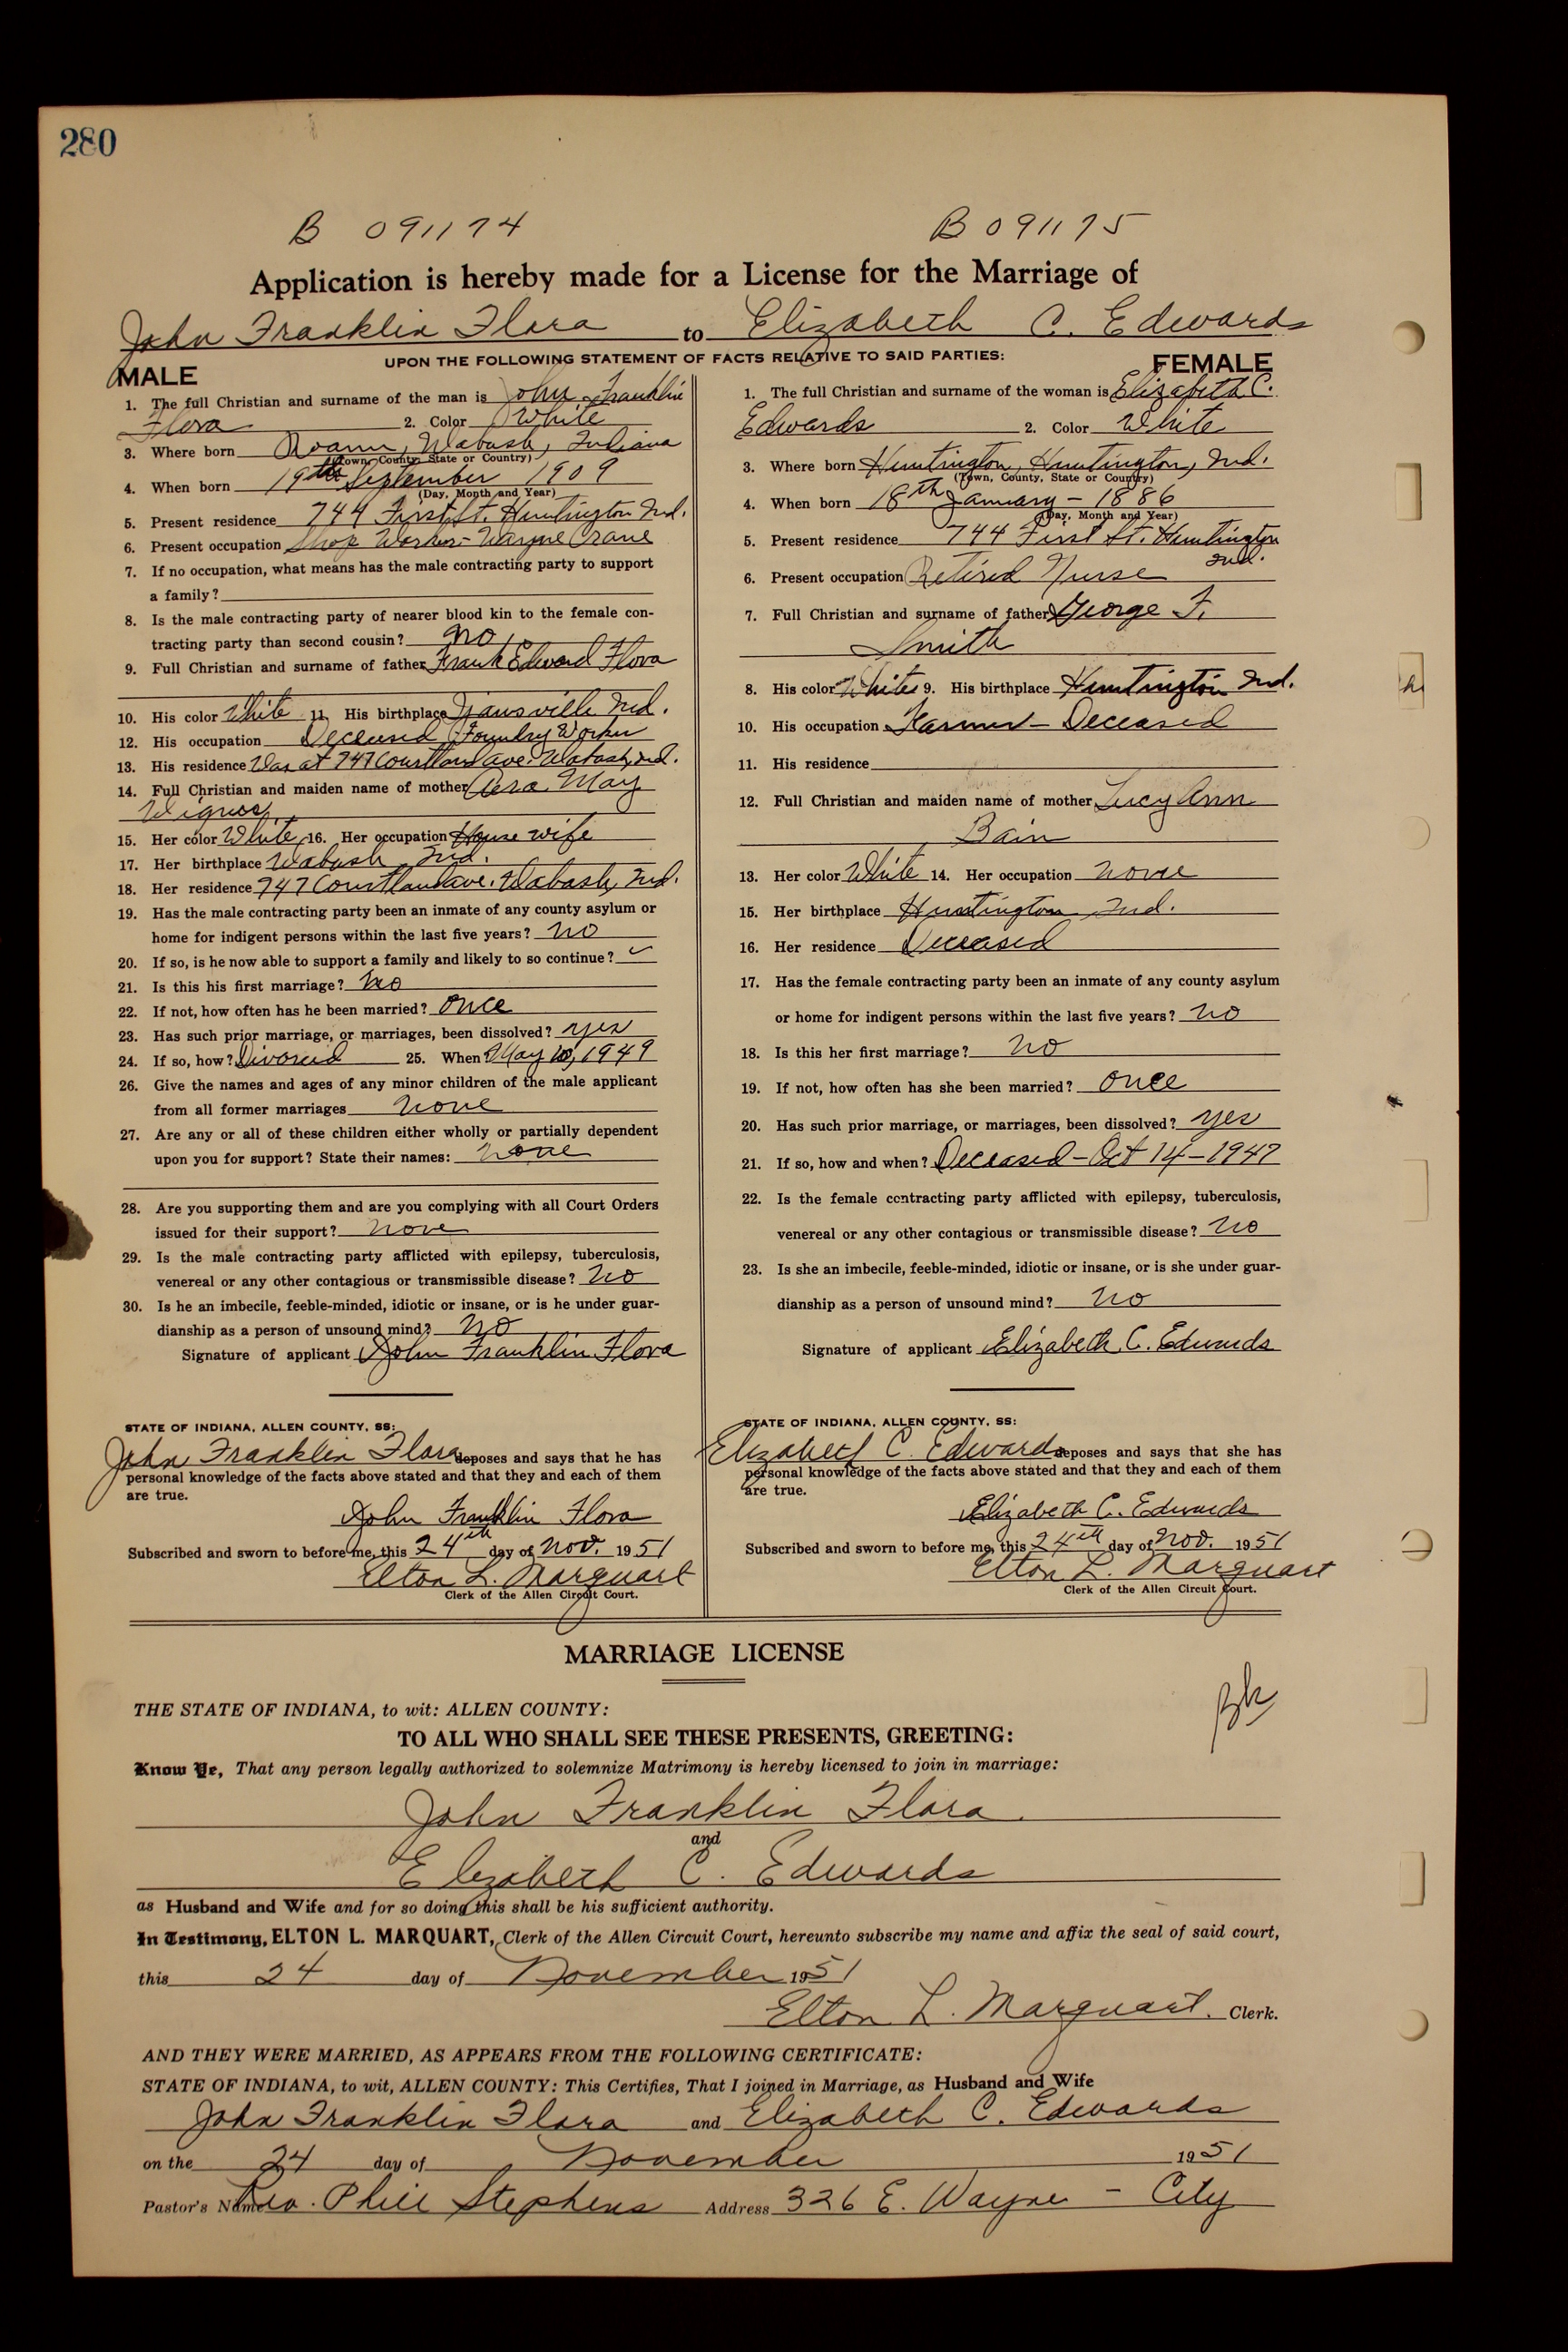 280
B 091174
B 091175
Application is hereby made for a License for the Marriage of
John Franklin Flora to Elizabeth C. Edwards
UPON THE FOLLOWING STATEMENT OF FACTS RELATIVE TO SAID PARTIES:
MALE
1. The full Christian and surname of the man is John Franklin
Flora 2. Color White
3. Where born Roann, Wabash, Indiana
(Town, County, State or Country)
4. When born 19th September 1909
(Day, Month and Year)
5. Present residence 744 First St. Huntington Ind.
6. Present occupation Shop Worker - Wayne Crane
7. If no occupation, what means has the male contracting party to support
a family?
8. Is the male contracting party of nearer blood kin to the female con-
tracting party than second cousin? no
9. Full Christian and surname of father Frank Edward Flora
10. His color White 11. His birthplace Ind.
12. His occupation Deceased Foundry Worker
13. His residence Was at 747 Courtland Ave. Wabash, Ind.
14. Full Christian and maiden name of mother May
15. Her color White 16. Her occupation House wife
17. Her birthplace Wabash Ind.
18. Her residence 747 Courtland Ave. Wabash, Ind.
19. Has the male contracting party been an inmate of any county asylum or
home for indigent persons within the last five years? no
20. If so, is he now able to support a family and likely to so continue? ✓
21. Is this his first marriage? no
22. If not, how often has he been married? once
23. Has such prior marriage, or marriages, been dissolved? yes
24. If so, how? Divorced 25. When May 10, 1949
26. Give the names and ages of any minor children of the male applicant
from all former marriages none
27. Are any or all of these children either wholly or partially dependent
upon you for support? State their names: none
28. Are you supporting them and are you complying with all Court Orders
issued for their support? none
29. Is the male contracting party afflicted with epilepsy, tuberculosis,
venereal or any other contagious or transmissible disease? no
30. Is he an imbecile, feeble-minded, idiotic or insane, or is he under guar-
dianship as a person of unsound mind? no
Signature of applicant John Franklin Flora
STATE OF INDIANA, ALLEN COUNTY, SS:
John Franklin Flora deposes and says that he has
personal knowledge of the facts above stated and that they and each of them
are true.
John Franklin Flora
Subscribed and sworn to before me, this 24th day of Nov. 1951
Elton L. Marquart
Clerk of the Allen Circuit Court.
FEMALE
1. The full Christian and surname of the woman is Elizabeth C.
Edwards 2. Color White
3. Where born Huntington, Huntington, Ind.
(Town, County, State or Country)
4. When born 18th January - 1886
(Day, Month and Year)
5. Present residence 744 First St. Huntington
Ind.
6. Present occupation Retired Nurse
7. Full Christian and surname of father George F.
Smith
8. His color White 9. His birthplace Huntington Ind.
10. His occupation Farmer - Deceased
11. His residence
12. Full Christian and maiden name of mother Lucy Ann
Bain
13. Her color White 14. Her occupation none
15. Her birthplace Huntington Ind.
16. Her residence Deceased
17. Has the female contracting party been an inmate of any county asylum
or home for indigent persons within the last five years? no
18. Is this her first marriage? no
19. If not, how often has she been married? once
20. Has such prior marriage, or marriages, been dissolved? yes
21. If so, how and when? Deceased - Oct 14 - 1947
22. Is the female contracting party afflicted with epilepsy, tuberculosis,
venereal or any other contagious or transmissible disease? no
23. Is she an imbecile, feeble-minded, idiotic or insane, or is she under guar-
dianship as a person of unsound mind? no
Signature of applicant Elizabeth C. Edwards
STATE OF INDIANA, ALLEN COUNTY, SS:
Elizabeth C. Edwards deposes and says that she has
personal knowledge of the facts above stated and that they and each of them
are true.
Elizabeth C. Edwards
Subscribed and sworn to before me, this 24th day of Nov. 1951
Elton L. Marquart
Clerk of the Allen Circuit Court.
MARRIAGE LICENSE
THE STATE OF INDIANA, to wit: ALLEN COUNTY:
TO ALL WHO SHALL SEE THESE PRESENTS, GREETING:
Know Ye, That any person legally authorized to solemnize Matrimony is hereby licensed to join in marriage:
John Franklin Flora
and
Elizabeth C. Edwards
as Husband and Wife and for so doing this shall be his sufficient authority.
In Testimony, ELTON L. MARQUART, Clerk of the Allen Circuit Court, hereunto subscribe my name and affix the seal of said court,
this 24 day of November 1951
Elton L. Marquart. Clerk.
AND THEY WERE MARRIED, AS APPEARS FROM THE FOLLOWING CERTIFICATE:
STATE OF INDIANA, to wit, ALLEN COUNTY: This Certifies, That I joined in Marriage, as Husband and Wife
John Franklin Flora and Elizabeth C. Edwards
on the 24 day of November 1951
Pastor's Name Rev. Phill Stephens Address 326 E. Wayne - City